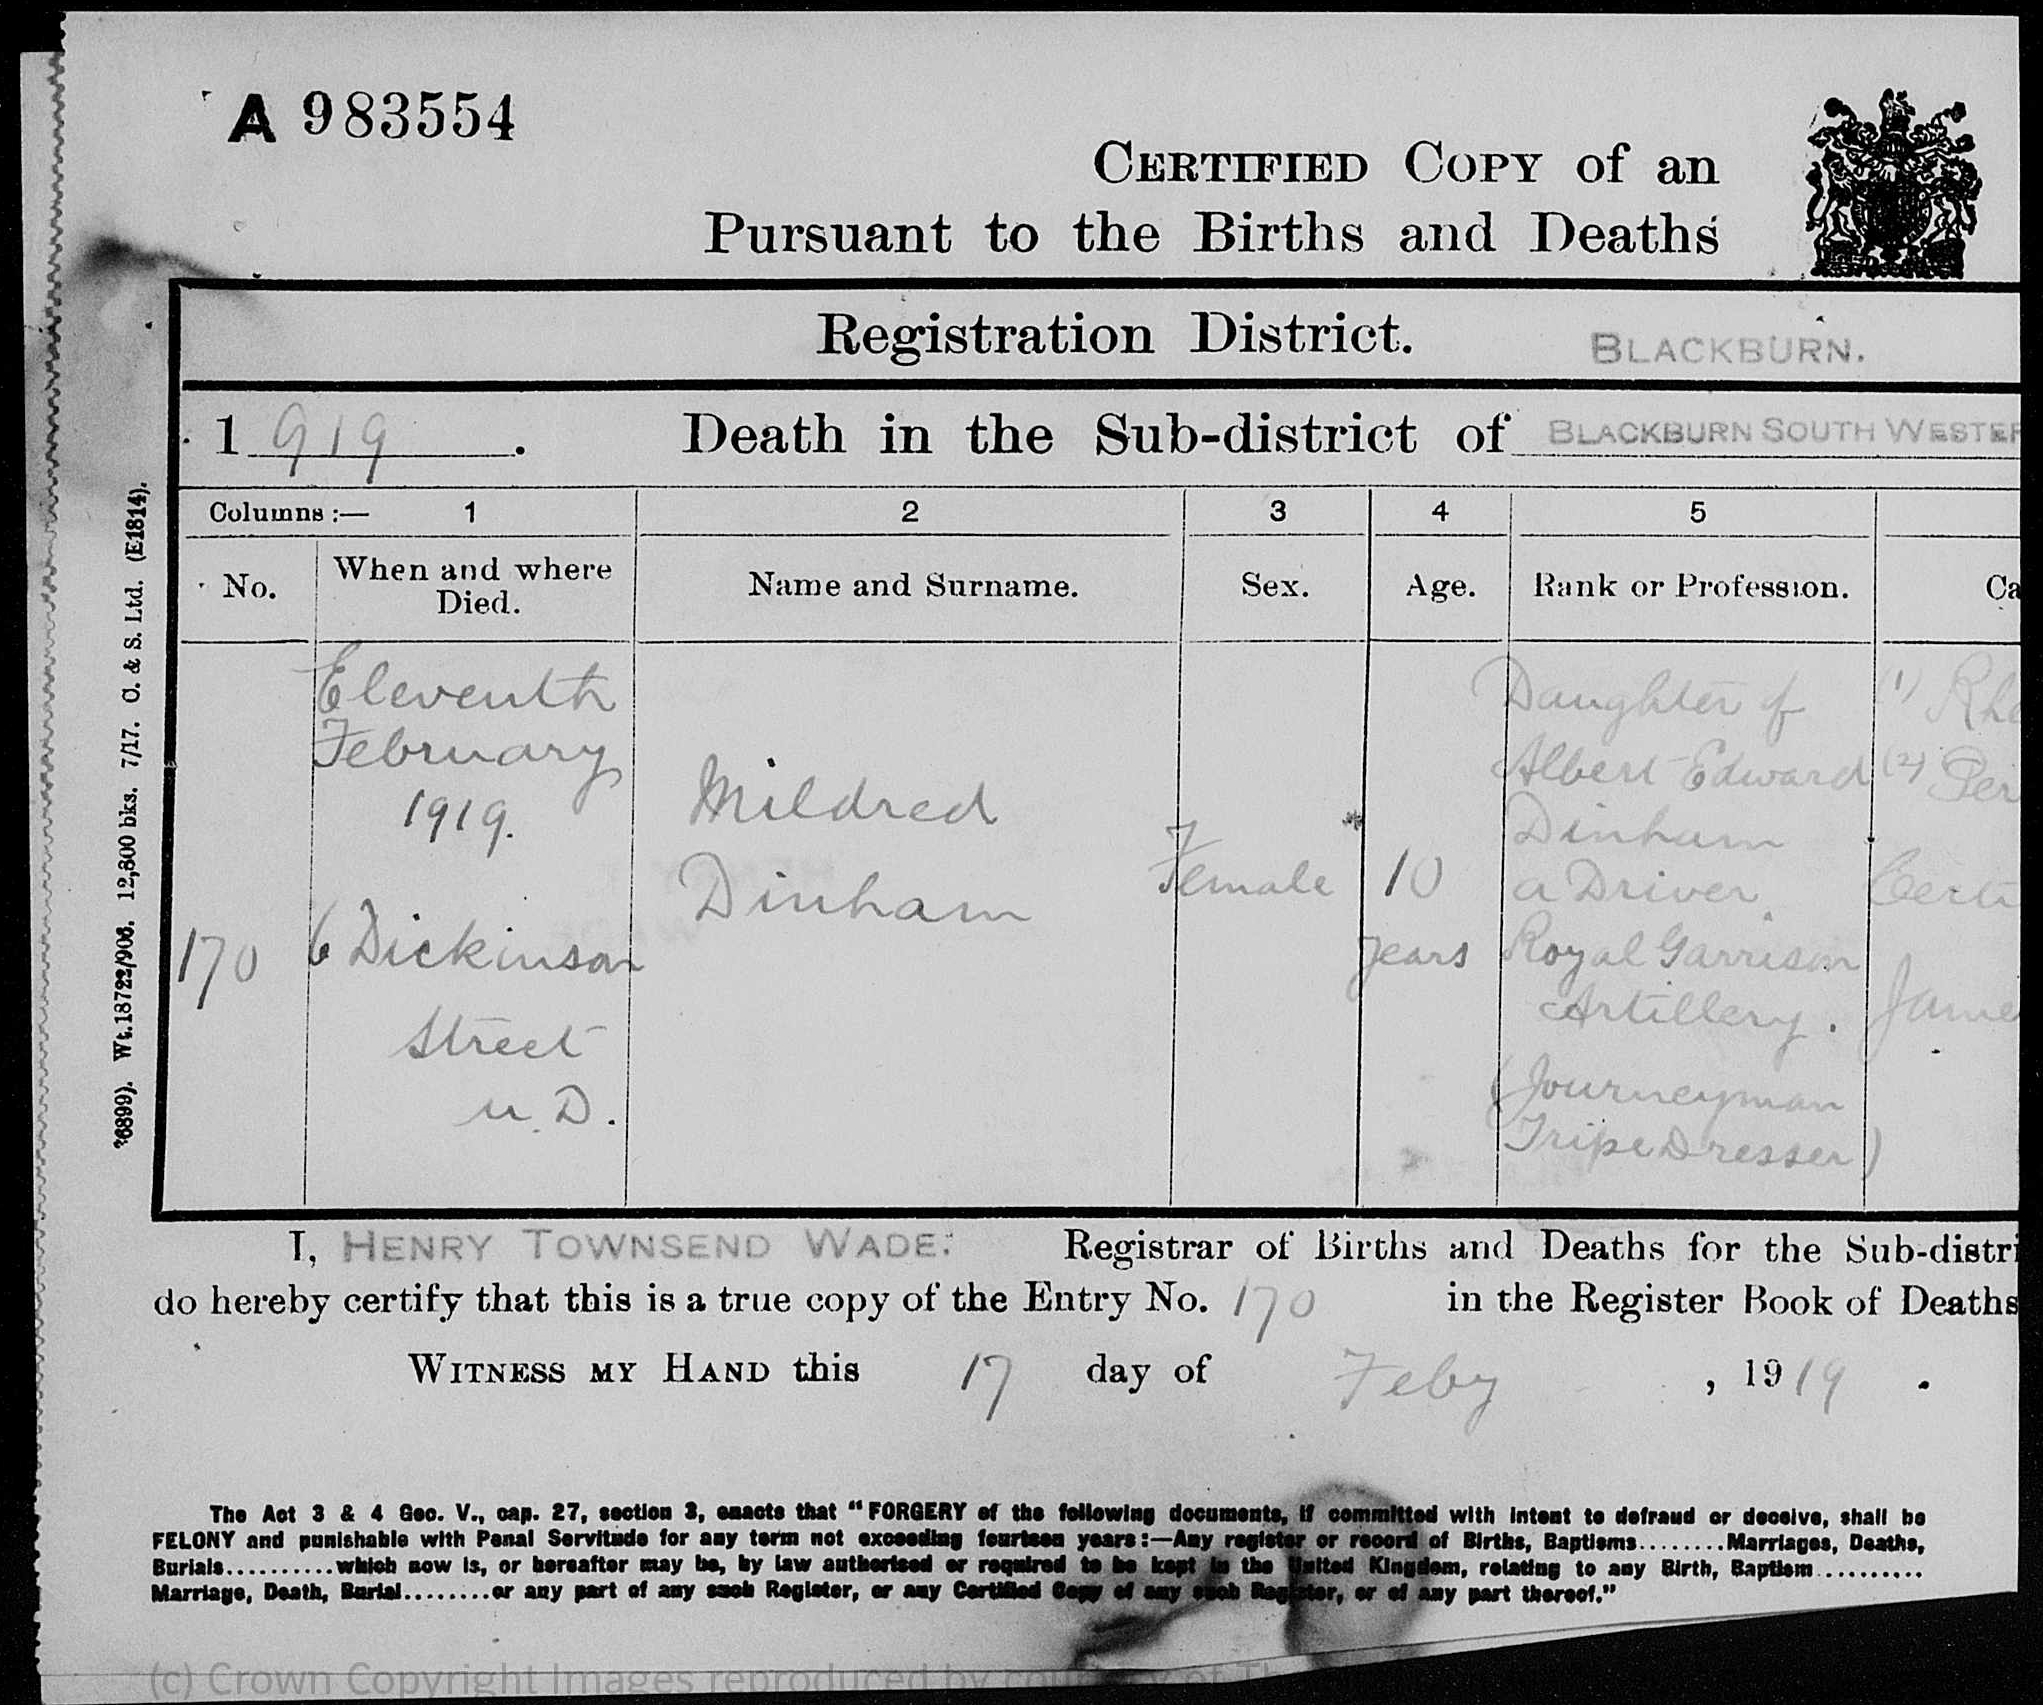 A 983554
CERTIFIED COPY of an
Pursuant to the Births and Deaths
Registration District. BLACKBURN.
1919. Death in the Sub-district of BLACKBURN SOUTH WESTER
Columns :— 1 2 3 4 5
No. When and where Died. Name and Surname. Sex. Age. Rank or Profession. Ca
170
Eleventh
February
1919.
6 Dickinson
Street
U.D.
Mildred
Dinham
Female
10
years
Daughter of
Albert Edward
Dinham
a Driver
Royal Garrison
Artillery.
(Journeyman
Tripe Dresser)
(1) Rhe
(2) Per
Certi
Jame
I, HENRY TOWNSEND WADE. Registrar of Births and Deaths for the Sub-distri
do hereby certify that this is a true copy of the Entry No. 170 in the Register Book of Deaths
WITNESS MY HAND this 17 day of Feby , 1919 .
The Act 3 & 4 Geo. V., cap. 27, section 3, enacts that "FORGERY of the following documents, if committed with intent to defraud or deceive, shall be
FELONY and punishable with Penal Servitude for any term not exceeding fourteen years:—Any register or record of Births, Baptisms........Marriages, Deaths,
Burials..........which now is, or hereafter may be, by law authorised or required to be kept in the United Kingdom, relating to any Birth, Baptism..........
Marriage, Death, Burial........or any part of any such Register, or any Certified Copy of any such Register, or of any part thereof."
?6899). Wt.18722/906. 12,800 bks. 7/17. O. & S. Ltd. (E1814).
(c) Crown Copyright Images reproduced by courtesy of